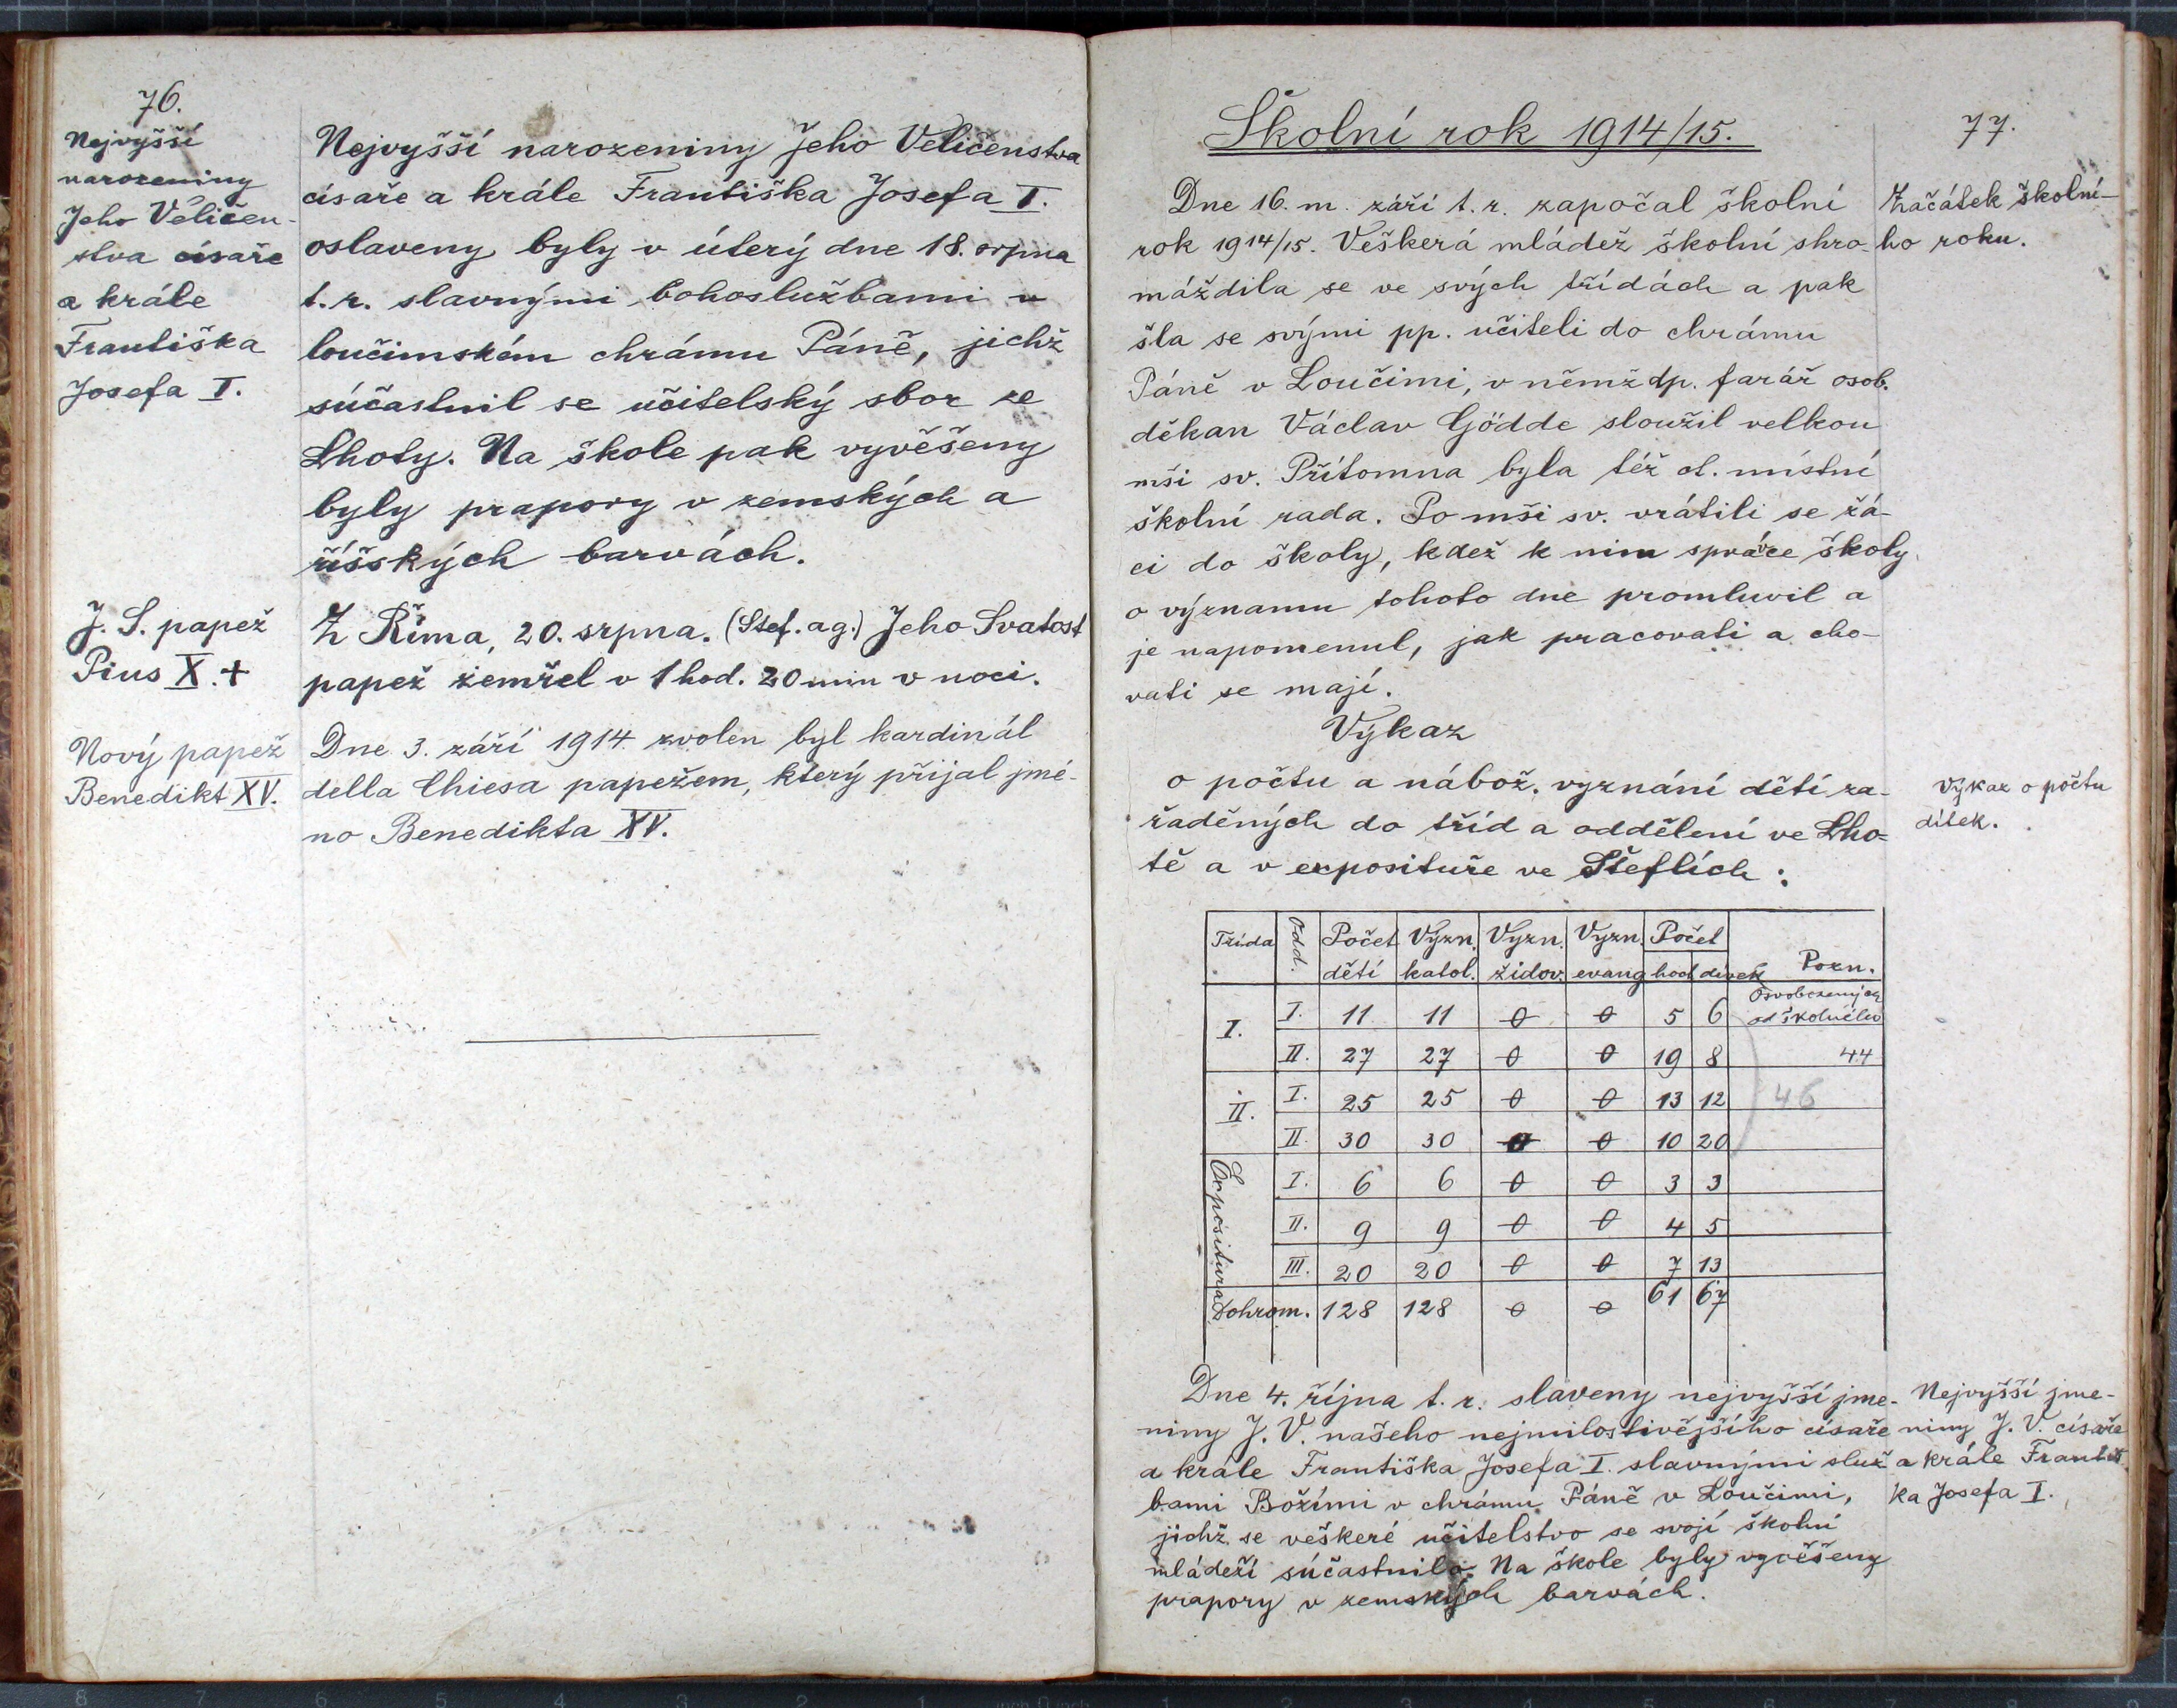 76.
Nejvyšší
narozeniny
Jeho Veličen-
stva císaře
a krále
Františka
Josefa I.
Nejvyšší narozeniny Jeho Veličenstva
císaře a krále Františka Josefa I.
oslaveny byly v úterý dne 18. srpna
t. r. slavnými bohoslužbami v
loučimském chrámu Páně, jichž
súčastnil se učitelský sbor ze
Lhoty. Na škole pak vyvěšeny
byly prapory v zemských a
říšských barvách.
J. S. papež
Pius X. +
Z Říma, 20. srpna. (Stef. ag.) Jeho Svatost
papež zemřel v 1 hod. 20 min v noci.
Nový papež
Benedikt XV.
Dne 3. září 1914 zvolen byl kardinál
della Chiesa papežem, který přijal jmé-
no Benedikta XV.
Školní rok 1914/15.
77.
Dne 16. m. září t. r. započal školní
rok 1914/15. Veškerá mládež školní shro-
máždila se ve svých třídách a pak
šla se svými pp. učiteli do chrámu
Páně v Loučimi, v němž dp. farář osob.
děkan Václav Gödde sloužil velkou
mši sv. Přítomna byla též sl. místní
školní rada. Po mši sv. vrátili se žá-
ci do školy, kdež k nim správce školy
o významu tohoto dne promluvil a
je napomenul, jak pracovati a cho-
vati se mají.
Začátek školní-
ho roku.
Výkaz
o počtu a nábož. vyznání dětí za-
řaděných do tříd a oddělení ve Lho-
tě a v exposituře ve Šteflích:
Výkaz o počtu
dítek.
Třída Odd. Počet dětí Vyzn. katol. Vyzn. židov. Vyzn. evang Počet hoch dívek Pozn.
Osvobozených
od školného
I. I. 11 11 0 0 5 6
II. 27 27 0 0 19 8 44
II. I. 25 25 0 0 13 12 46
II. 30 30 0 0 10 20
Expositura I. 6 6 0 0 3 3
II. 9 9 0 0 4 5
III. 20 20 0 0 7 13
Dohrom. 128 128 0 0 61 67
Dne 4. října t. r. slaveny nejvyšší jme-
niny J. V. našeho nejmilostivějšího císaře
a krále Františka Josefa I. slavnými služ
bami Božími v chrámu Páně v Loučimi,
jichž se veškeré učitelstvo se svojí školní
mládeží súčastnilo. Na škole byly vyvěšeny
prapory v zemských barvách.
Nejvyšší jme-
niny J. V. císaře
a krále Františ
ka Josefa I.